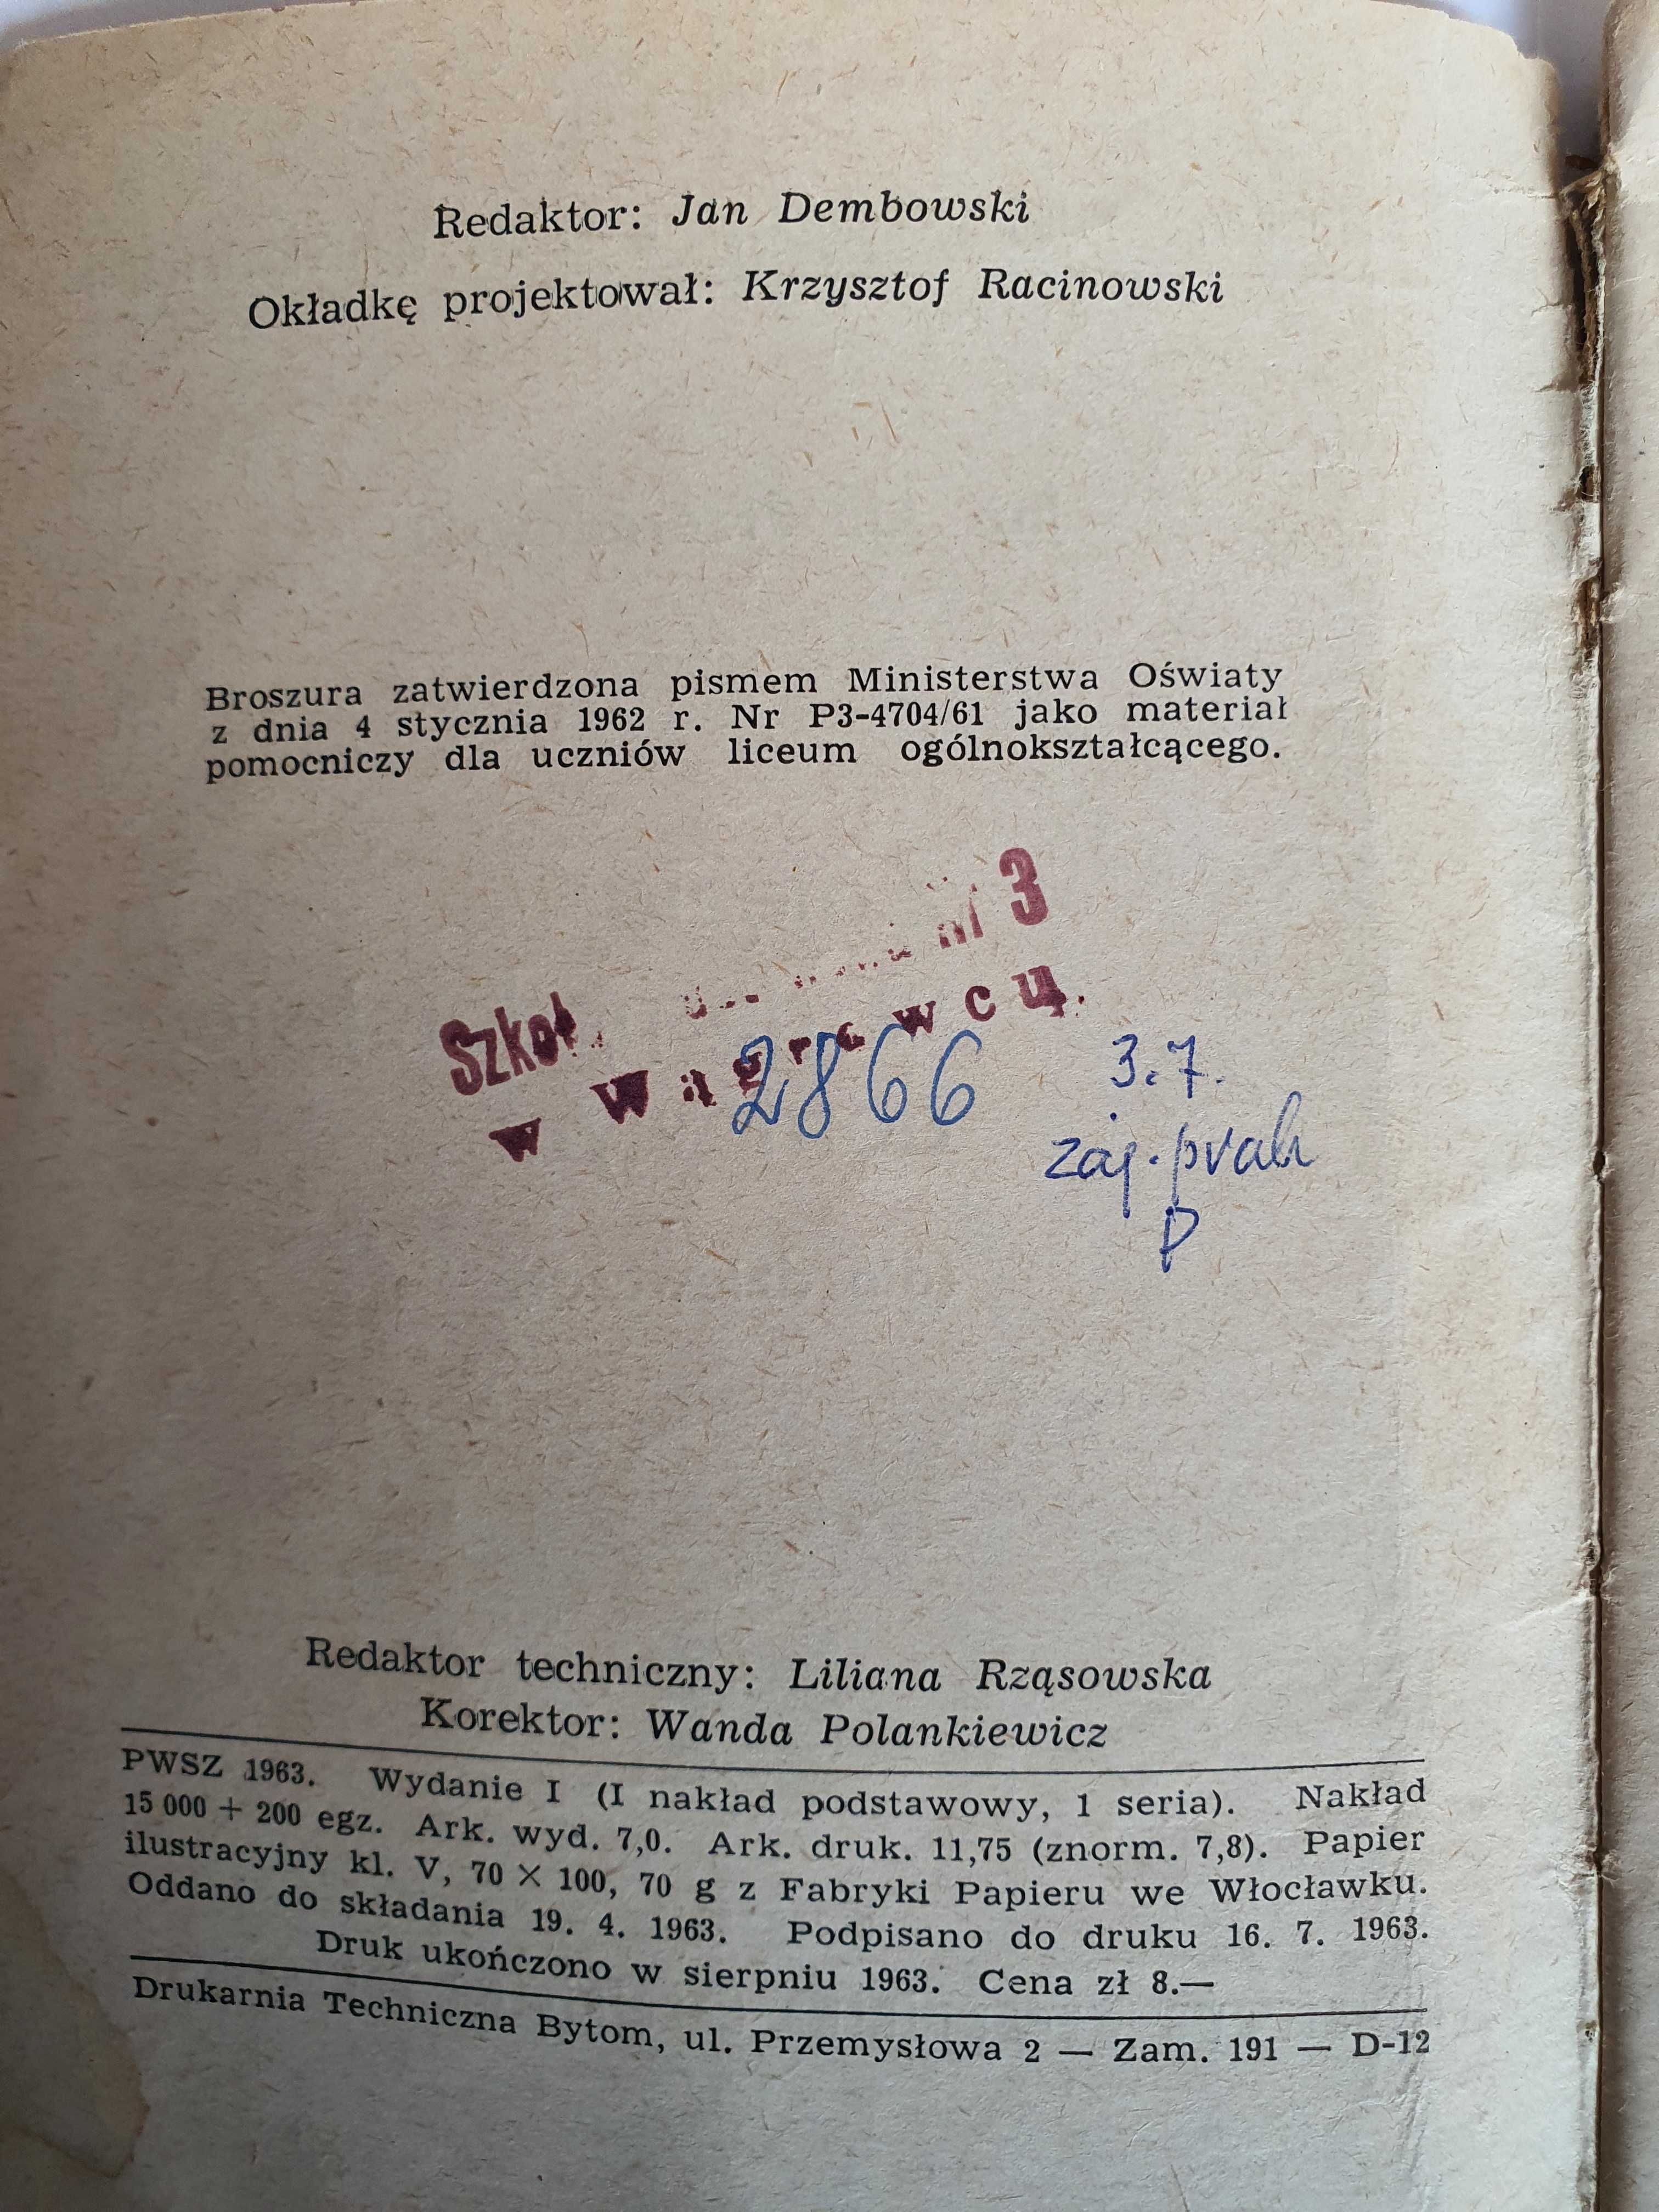 Redaktor: Jan Dembowski
Okładkę projektował: Krzysztof Racinowski
Broszura zatwierdzona pismem Ministerstwa Oświaty
z dnia 4 stycznia 1962 r. Nr P3-4704/61 jako materiał
pomocniczy dla uczniów liceum ogólnokształcącego.
nr 3
w Wągrowcu.
2866
3.7.
zaj. prak
P
Redaktor techniczny: Liliana Rząsowska
Korektor: Wanda Polankiewicz
PWSZ 1963. Wydanie I (I nakład podstawowy, 1 seria). Nakład
15 000 + 200 egz. Ark. wyd. 7,0. Ark. druk. 11,75 (znorm. 7,8). Papier
ilustracyjny kl. V, 70 × 100, 70 g z Fabryki Papieru we Włocławku.
Oddano do składania 19. 4. 1963. Podpisano do druku 16. 7. 1963.
Druk ukończono w sierpniu 1963. Cena zł 8.—
Drukarnia Techniczna Bytom, ul. Przemysłowa 2 — Zam. 191 — D-12